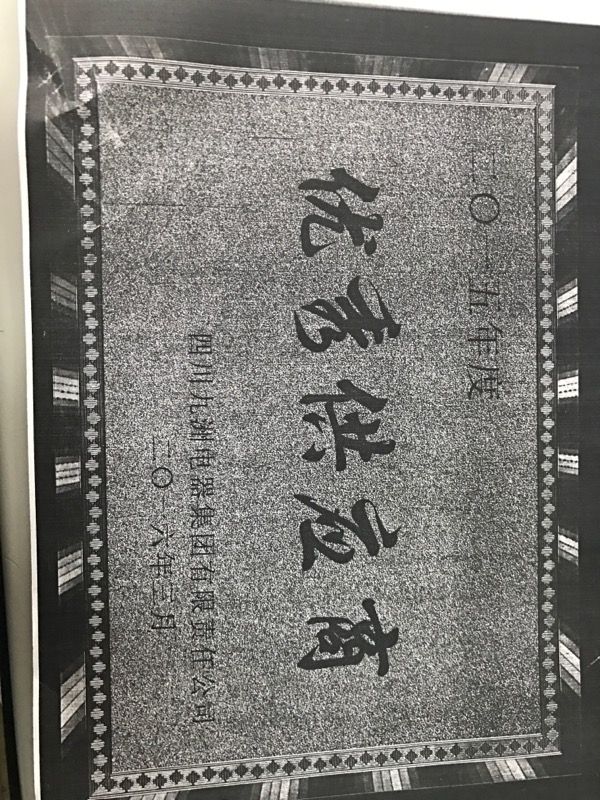 二〇一五年度
优秀供应商
四川九洲电器集团有限责任公司
二〇一六年三月